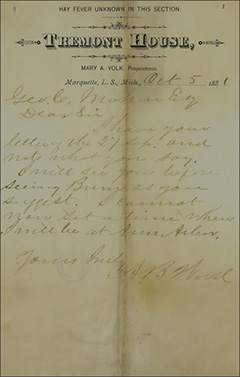 HAY FEVER UNKNOWN IN THIS SECTION.
TREMONT HOUSE,
MARY A. VOLK, Proprietress.
Marquette, L. S., Mich., Oct 5 1881
Geo. C. Esq
Dear Sir
I have your
letter of the 27 Sep. and
note what you say.
I will see you before
seeing as you
suggest. I cannot
now set a time when
I will be at Ann Arbor.
Yours Truly